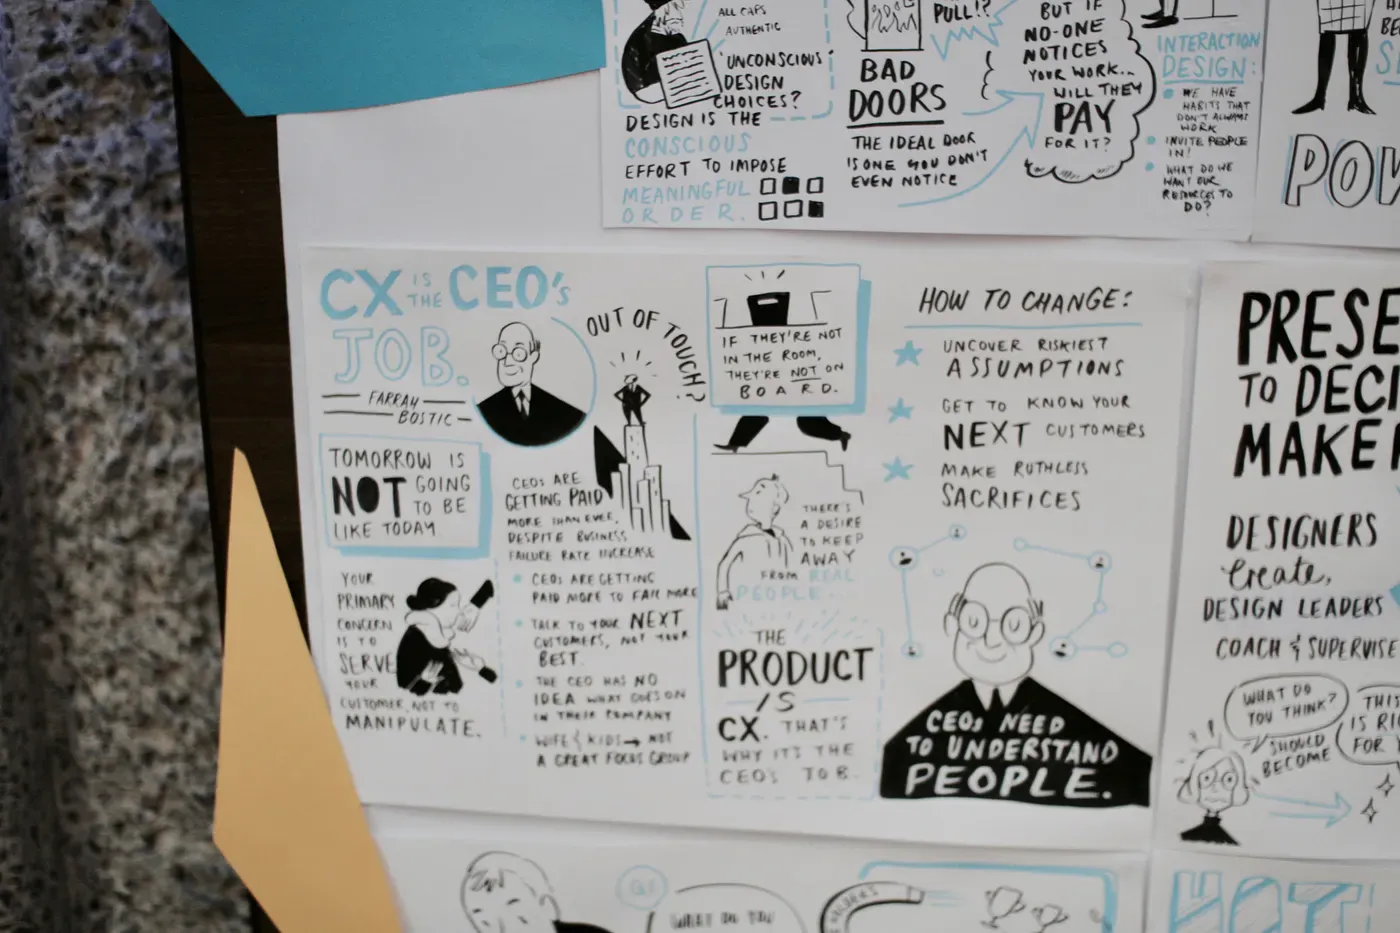 ALL CAPS
AUTHENTIC
'UNCONSCIOUS'
DESIGN
CHOICES?
DESIGN IS THE
CONSCIOUS
EFFORT TO IMPOSE
MEANINGFUL
ORDER.
PULL!?
BAD
DOORS
THE IDEAL DOOR
IS ONE YOU DON'T
EVEN NOTICE
BUT IF
NO-ONE
NOTICES
YOUR WORK...
WILL THEY
PAY
FOR IT?
INTERACTION
DESIGN:
WE HAVE
HABITS THAT
DON'T ALWAYS
WORK
INVITE PEOPLE
IN!
WHAT DO WE
WANT OUR
RESOURCES TO
DO?
POW
CX IS THE CEO'S
JOB.
FARRAH
BOSTIC
TOMORROW IS
NOT GOING
TO BE
LIKE TODAY
YOUR
PRIMARY
CONCERN
IS TO
SERVE
YOUR
CUSTOMER, NOT TO
MANIPULATE.
OUT OF TOUCH?
CEOs ARE
GETTING PAID
MORE THAN EVER,
DESPITE BUSINESS
FAILURE RATE INCREASE
CEOs ARE GETTING
PAID MORE TO FAIL MORE
TALK TO YOUR NEXT
CUSTOMERS, NOT YOUR
BEST.
THE CEO HAS NO
IDEA WHAT GOES ON
IN THEIR COMPANY
WIFE & KIDS → NOT
A GREAT FOCUS GROUP
IF THEY'RE NOT
IN THE ROOM,
THEY'RE NOT ON
BOARD.
THERE'S
A DESIRE
TO KEEP
AWAY
FROM REAL
PEOPLE...
THE
PRODUCT
IS
CX. THAT'S
WHY IT'S THE
CEO'S JOB.
HOW TO CHANGE:
UNCOVER RISKIEST
ASSUMPTIONS
GET TO KNOW YOUR
NEXT CUSTOMERS
MAKE RUTHLESS
SACRIFICES
CEOs NEED
TO UNDERSTAND
PEOPLE.
PRESE
TO DECI
MAKE
DESIGNERS
Create,
DESIGN LEADERS
COACH & SUPERVISE
WHAT DO
YOU THINK?
SHOULD
BECOME
THIS
IS RI
FOR
WHAT DO YOU
HOT